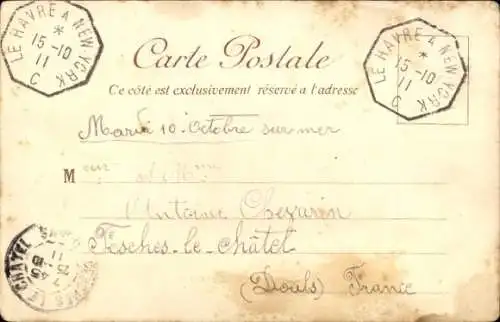 LE HAVRE A NEW YORK
*
15 -10
11
C
LE HAVRE A NEW YORK
*
15 -10
11
C
Carte Postale
Ce côté est exclusivement réservé à l'adresse
Mardi 10 Octobre sur mer
M
Antoine
Fesches-le-châtel
(Doubs) France
LE CHATEL
7 45
25 -10
11